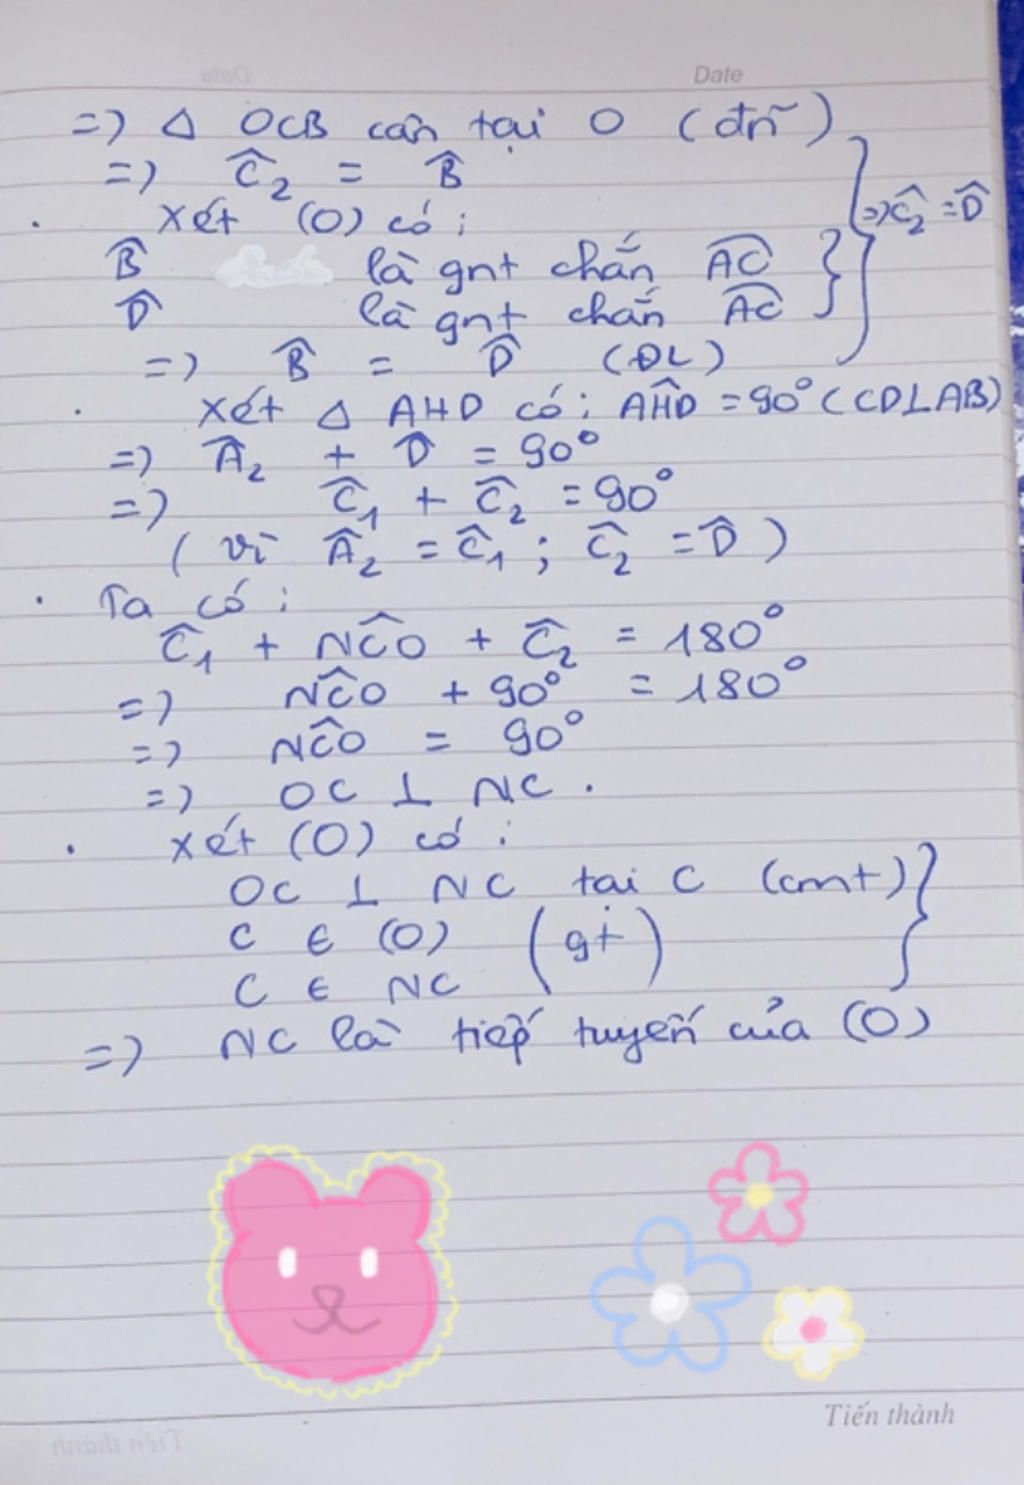 Date
=> Δ OCB cân tại O (đn)
=> Ĉ₂ = B̂
. Xét (O) có:
B̂ là gnt chắn A͡C
D̂ là gnt chắn A͡C
=> Ĉ₂ = D̂
=> B̂ = D̂ (ĐL)
. Xét Δ AHD có: AĤD = 90° (CD⊥AB)
=> Â₂ + D̂ = 90°
=> Ĉ₁ + Ĉ₂ = 90°
( vì Â₂ = Ĉ₁ ; Ĉ₂ = D̂ )
. Ta có:
Ĉ₁ + NĈO + Ĉ₂ = 180°
=> NĈO + 90° = 180°
=> NĈO = 90°
=> OC ⊥ NC .
. Xét (O) có:
OC ⊥ NC tại C (cmt)
C ∈ (O) (gt)
C ∈ NC
=> NC là tiếp tuyến của (O)
Tiến thành